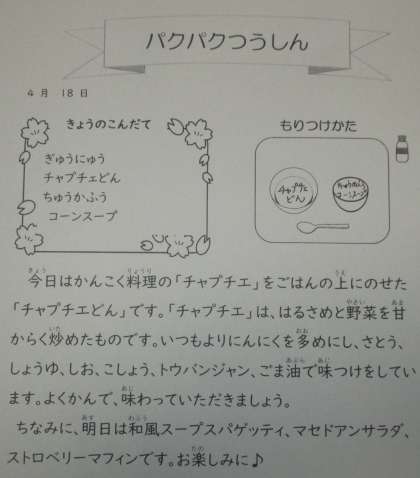 パクパクつうしん
4月 18日
きょうのこんだて
ぎゅうにゅう
チャプチェどん
ちゅうかふう
コーンスープ
もりつけかた
チャプチェ
どん
ちゅうかふう
コーンスープ
今日はかんこく料理の「チャプチエ」をごはんの上にのせた
「チャプチエどん」です。「チャプチエ」は、はるさめと野菜を甘
からく炒めたものです。いつもよりにんにくを多めにし、さとう、
しょうゆ、しお、こしょう、トウバンジャン、ごま油で味つけをしてい
ます。よくかんで、味わっていただきましょう。
ちなみに、明日は和風スープスパゲッティ、マセドアンサラダ、
ストロベリーマフィンです。お楽しみに♪